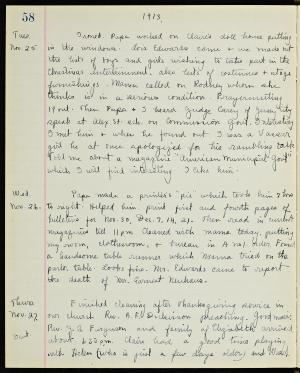 58
1913.
Tue. I ironed. Papa worked on Claire's doll house putting
Nov. 25 in the windows. Lois Edwards came & we made out
the lists of boys and girls wishing to take part in the
Christmas entertainment, also lists of costumes & stage
furnishings. Mama called on Rodney whom she
thinks is in a serious condition. Prayermeeting
19 out. Then Papa & I heard Judge Carey of
speak at Alex St. sch. on Commission Gov.
I met him & when he found out I was a Vassar
girl he at once apologized for his rambling talk.
Told me about a magazine "American Municipal Gov't"
which I will find interesting. I like him.
Wed. Papa made a printer's "pie" which took him 2 hrs
Nov. 26. to right. Helped him print first and fourth pages of
bulletins for Nov. 30, Dec. 7, 14, 21. Then read in current
magazines till 11 p.m. Cleaned with mama today, putting
my room, clothesroom, & bureau in A no 1 order. Found
a handsome table runner which Mama tried on the
parlor table. Looks fine. Mrs. Edwards came to report
the death of Mr. Forrest
Thurs. Finished cleaning after Thanksgiving service in
Nov. 27 our church. Rev. A. F. Dickinson preaching. Good music.
Rev. J. A. Ferguson and family of Elizabeth arrived
out about 6:30 p.m. Claire had a good time playing
with Helen (who is just a few days older) and